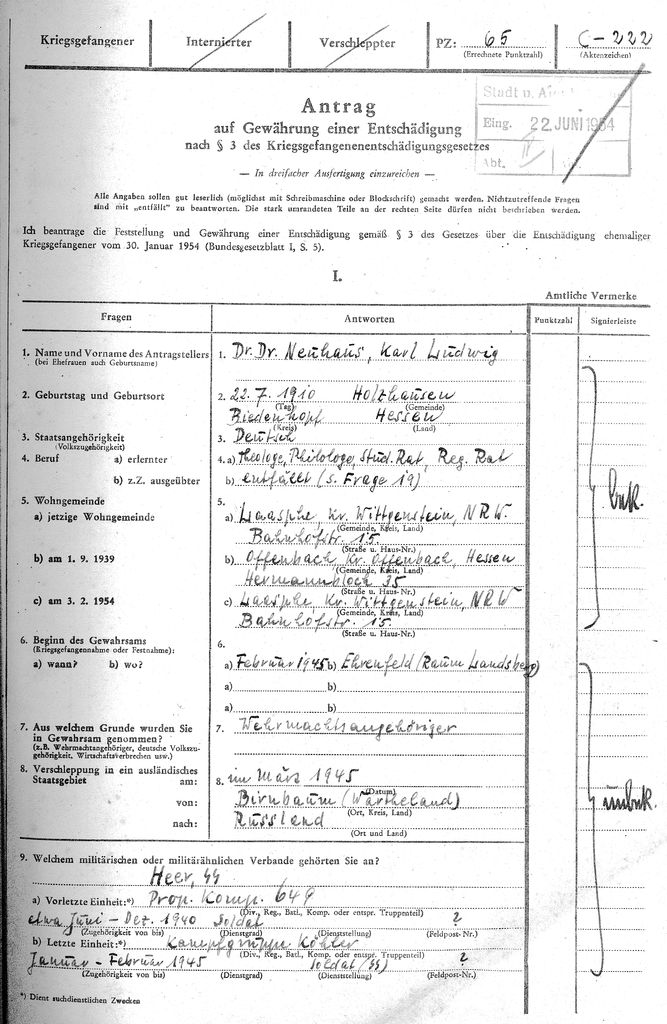 Kriegsgefangener Internierter Verschleppter PZ: 65 C-222
(Errechnete Punktzahl) (Aktenzeichen)
Stadt u.
Eing. 22. JUNI 1954
Abt.
Antrag
auf Gewährung einer Entschädigung
nach § 3 des Kriegsgefangenenentschädigungsgesetzes
— In dreifacher Ausfertigung einzureichen —
Alle Angaben sollen gut leserlich (möglichst mit Schreibmaschine oder Blockschrift) gemacht werden. Nichtzutreffende Fragen
sind mit „entfällt" zu beantworten. Die stark umrandeten Teile an der rechten Seite dürfen nicht beschrieben werden.
Ich beantrage die Feststellung und Gewährung einer Entschädigung gemäß § 3 des Gesetzes über die Entschädigung ehemaliger
Kriegsgefangener vom 30. Januar 1954 (Bundesgesetzblatt I, S. 5).
I.
Amtliche Vermerke
Fragen Antworten Punktzahl Signierleiste
1. Name und Vorname des Antragstellers 1. Dr. Dr. Neuhaus, Karl Ludwig
(bei Ehefrauen auch Geburtsname)
2. Geburtstag und Geburtsort 2. 22. 7. 1910 Holzhausen
(Tag) (Gemeinde)
Biedenkopf Hessen
(Kreis) (Land)
3. Staatsangehörigkeit 3. Deutsch
(Volkszugehörigkeit)
4. Beruf a) erlernter 4. a) Theologe, Philologe, Stud. Rat, Reg. Rat
b) z.Z. ausgeübter b) entfällt (s. Frage 19)
5. Wohngemeinde 5.
a) jetzige Wohngemeinde a) Laasphe, Kr. Wittgenstein, NRW.
(Gemeinde, Kreis, Land)
Bahnhofstr. 15.
(Straße u. Haus-Nr.)
b) am 1. 9. 1939 b) Offenbach Kr. Offenbach, Hessen
(Gemeinde, Kreis, Land)
Hermannbloch 35
(Straße u. Haus-Nr.)
c) am 3. 2. 1954 c) Laasphe Kr. Wittgenstein, NRW
(Gemeinde, Kreis, Land)
Bahnhofstr. 15.
(Straße u. Haus-Nr.)
6. Beginn des Gewahrsams 6.
(Kriegsgefangennahme oder Festnahme):
a) wann? b) wo? a) Februar 1945 b) Ehrenfeld (Raum Landsberg)
a) b)
a) b)
7. Aus welchem Grunde wurden Sie 7. Wehrmachtsangehöriger
in Gewahrsam genommen?
(z.B. Wehrmachtangehöriger, deutsche Volkszu-
gehörigkeit, Wirtschaftsverbrechen usw.)
8. Verschleppung in ein ausländisches
Staatsgebiet am: 8. im März 1945
(Datum)
von: Birnbaum (Wartheland)
(Ort, Kreis, Land)
nach: Russland
(Ort und Land)
9. Welchem militärischen oder militärähnlichen Verbande gehörten Sie an?
Heer, SS
a) Vorletzte Einheit:*) Prop. Komp. 649
(Div., Reg., Batl., Komp. oder entspr. Truppenteil)
etwa Juni - Dez. 1940 Soldat ?
(Zugehörigkeit von bis) (Dienstgrad) (Dienststellung) (Feldpost-Nr.)
b) Letzte Einheit:*) Kampfgruppe Köhler
(Div., Reg., Batl., Komp. oder entspr. Truppenteil)
Januar - Februar 1945 Soldat (SS) ?
(Zugehörigkeit von bis) (Dienstgrad) (Dienststellung) (Feldpost-Nr.)
*) Dient suchdienstlichen Zwecken